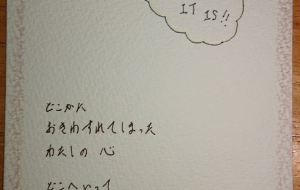 IT IS!!
どこかに
おきわすれてしまった
わたしの 心
どこへいって